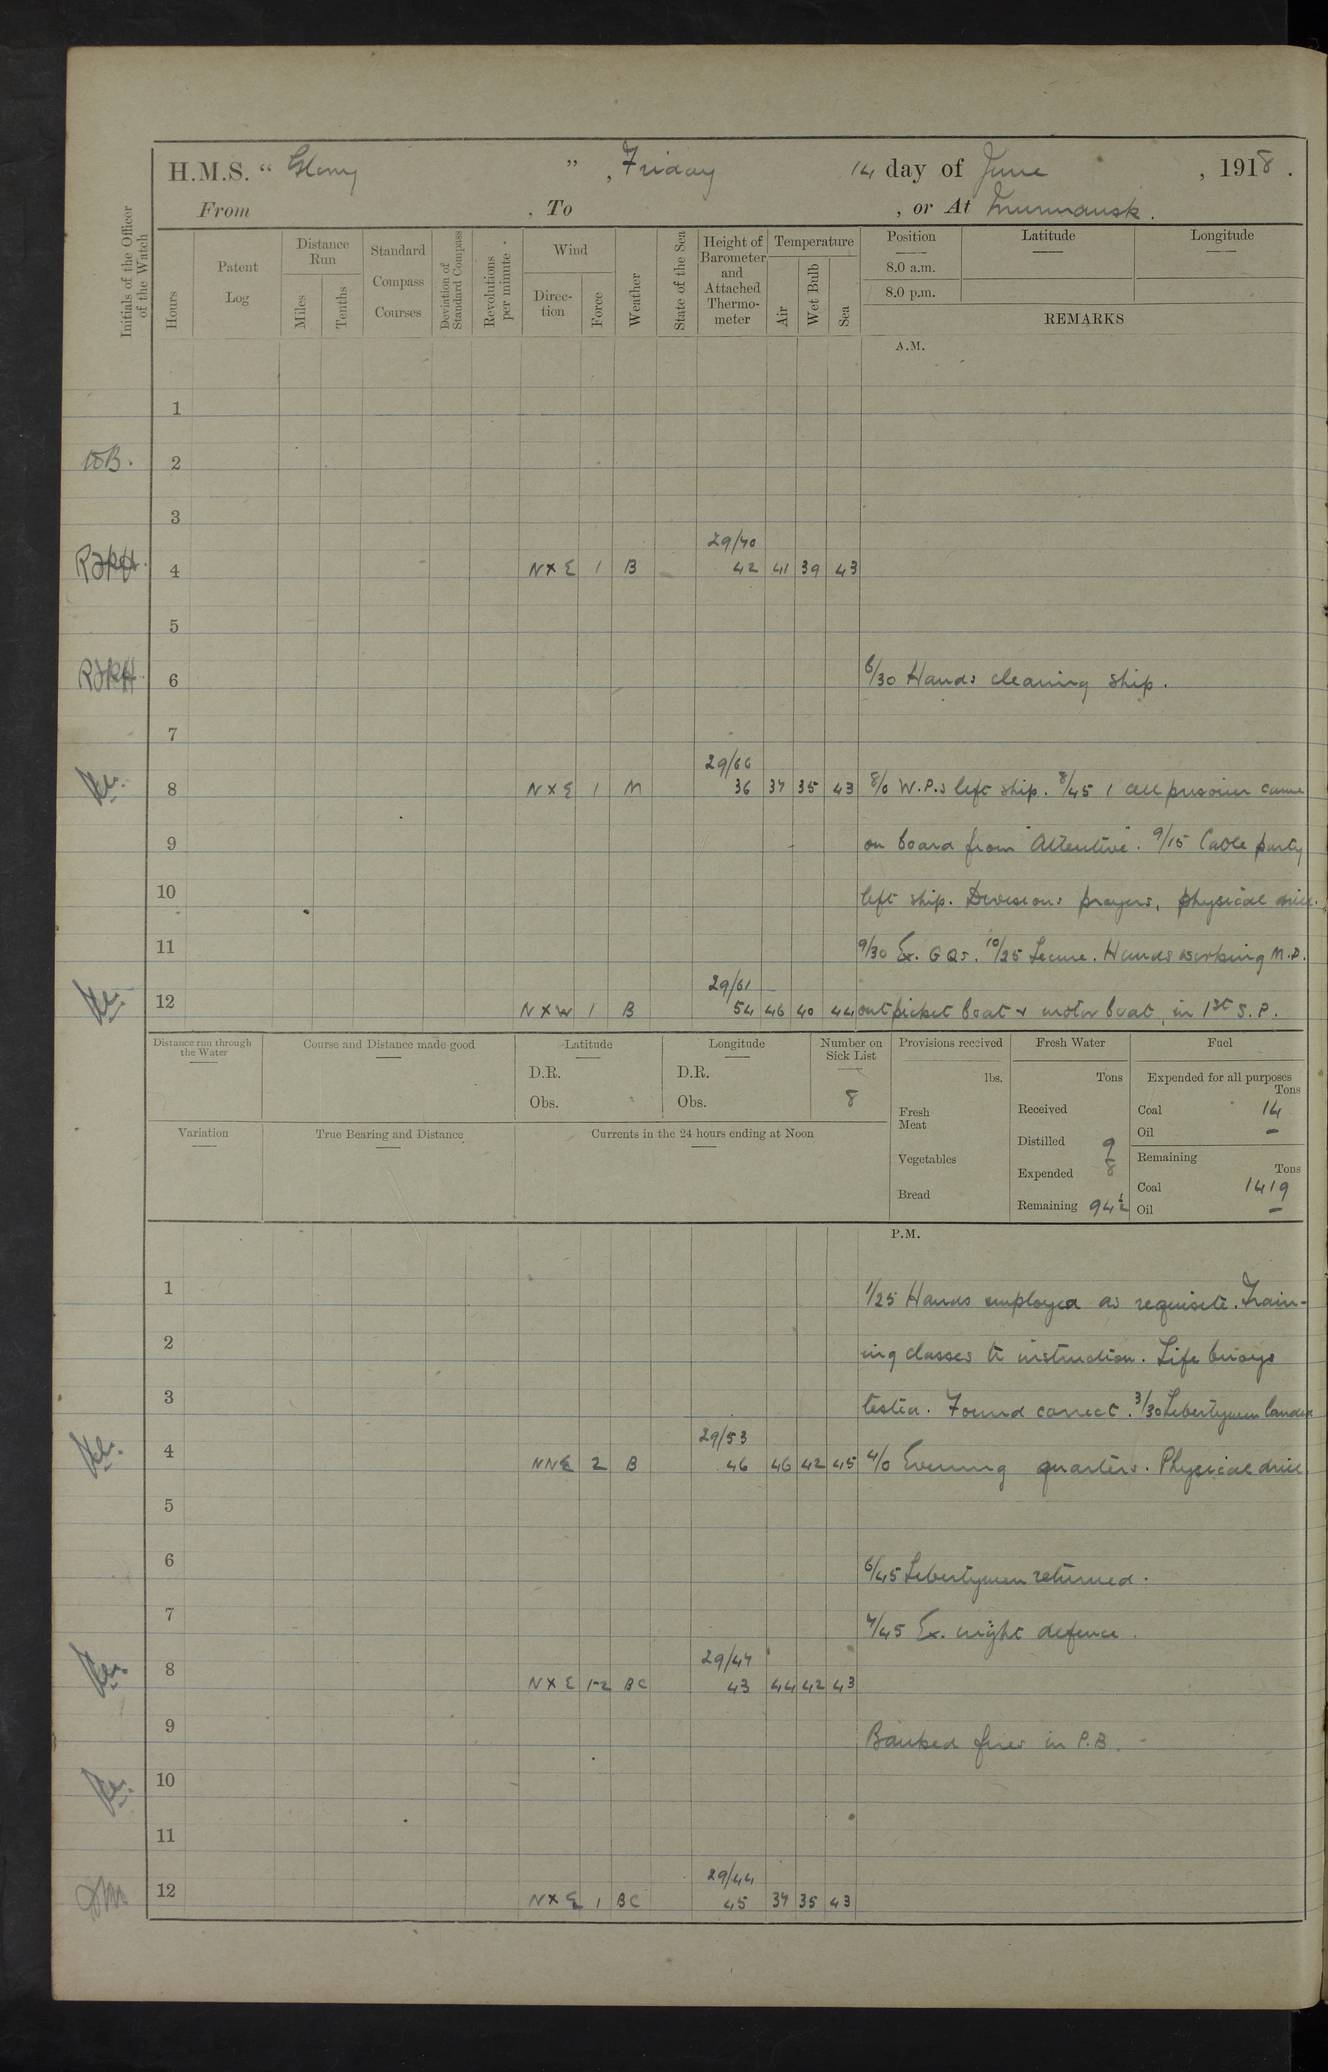 H.M.S. “ Glory ” , Friday 14 day of June , 1918 .
From , To , or At Murmansk .
Initials of the Officer of the Watch
Hours
Patent Log
Distance Run
Miles Tenths
Standard Compass Courses
Deviation of Standard Compass
Revolutions per minute
Wind
Direction Force
Weather
State of the Sea
Height of Barometer and Attached Thermometer
Temperature
Air Wet Bulb Sea
Position Latitude Longitude
8.0 a.m.
8.0 p.m.
REMARKS
A.M.
1
2
3
29/70
4 N×E 1 B 42 41 39 43
5
6 6/30 Hands cleaning ship.
7
29/66
8 N×E 1 M 36 37 35 43 8/0 W.P.s left ship. 8/45 1 all prisoner came
9 on board from "Attentive". 9/15 Cable party
10 left ship. Divisions prayers, physical drill.
11 9/30 Ex. G Qs. 10/25 Secure. Hands working M.D.
29/61
12 N×W 1 B 54 46 40 44 out picket boat & motor boat in 1st S.P.
Distance run through the Water
Course and Distance made good
Latitude
D.R.
Obs.
Longitude
D.R.
Obs.
Number on Sick List
8
Variation
True Bearing and Distance
Currents in the 24 hours ending at Noon
Provisions received
lbs.
Fresh Meat
Vegetables
Bread
Fresh Water
Tons
Received
Distilled 9
Expended 8
Remaining 94½
Fuel
Expended for all purposes
Tons
Coal 14
Oil –
Remaining
Tons
Coal 1419
Oil –
P.M.
1 1/25 Hands employed as requisite. Train-
2 ing classes to instruction. Life buoys
3 tested. Found correct. 3/30 Libertymen landed
29/53
4 NNE 2 B 46 46 42 45 4/0 Evening quarters. Physical drill
5
6 6/45 Libertymen returned.
7 7/45 Ex. night defence.
29/47
8 N×E 1-2 BC 43 44 42 43
9 Banked fires in P.B.
10
11
29/44
12 N×E 1 BC 45 37 35 43